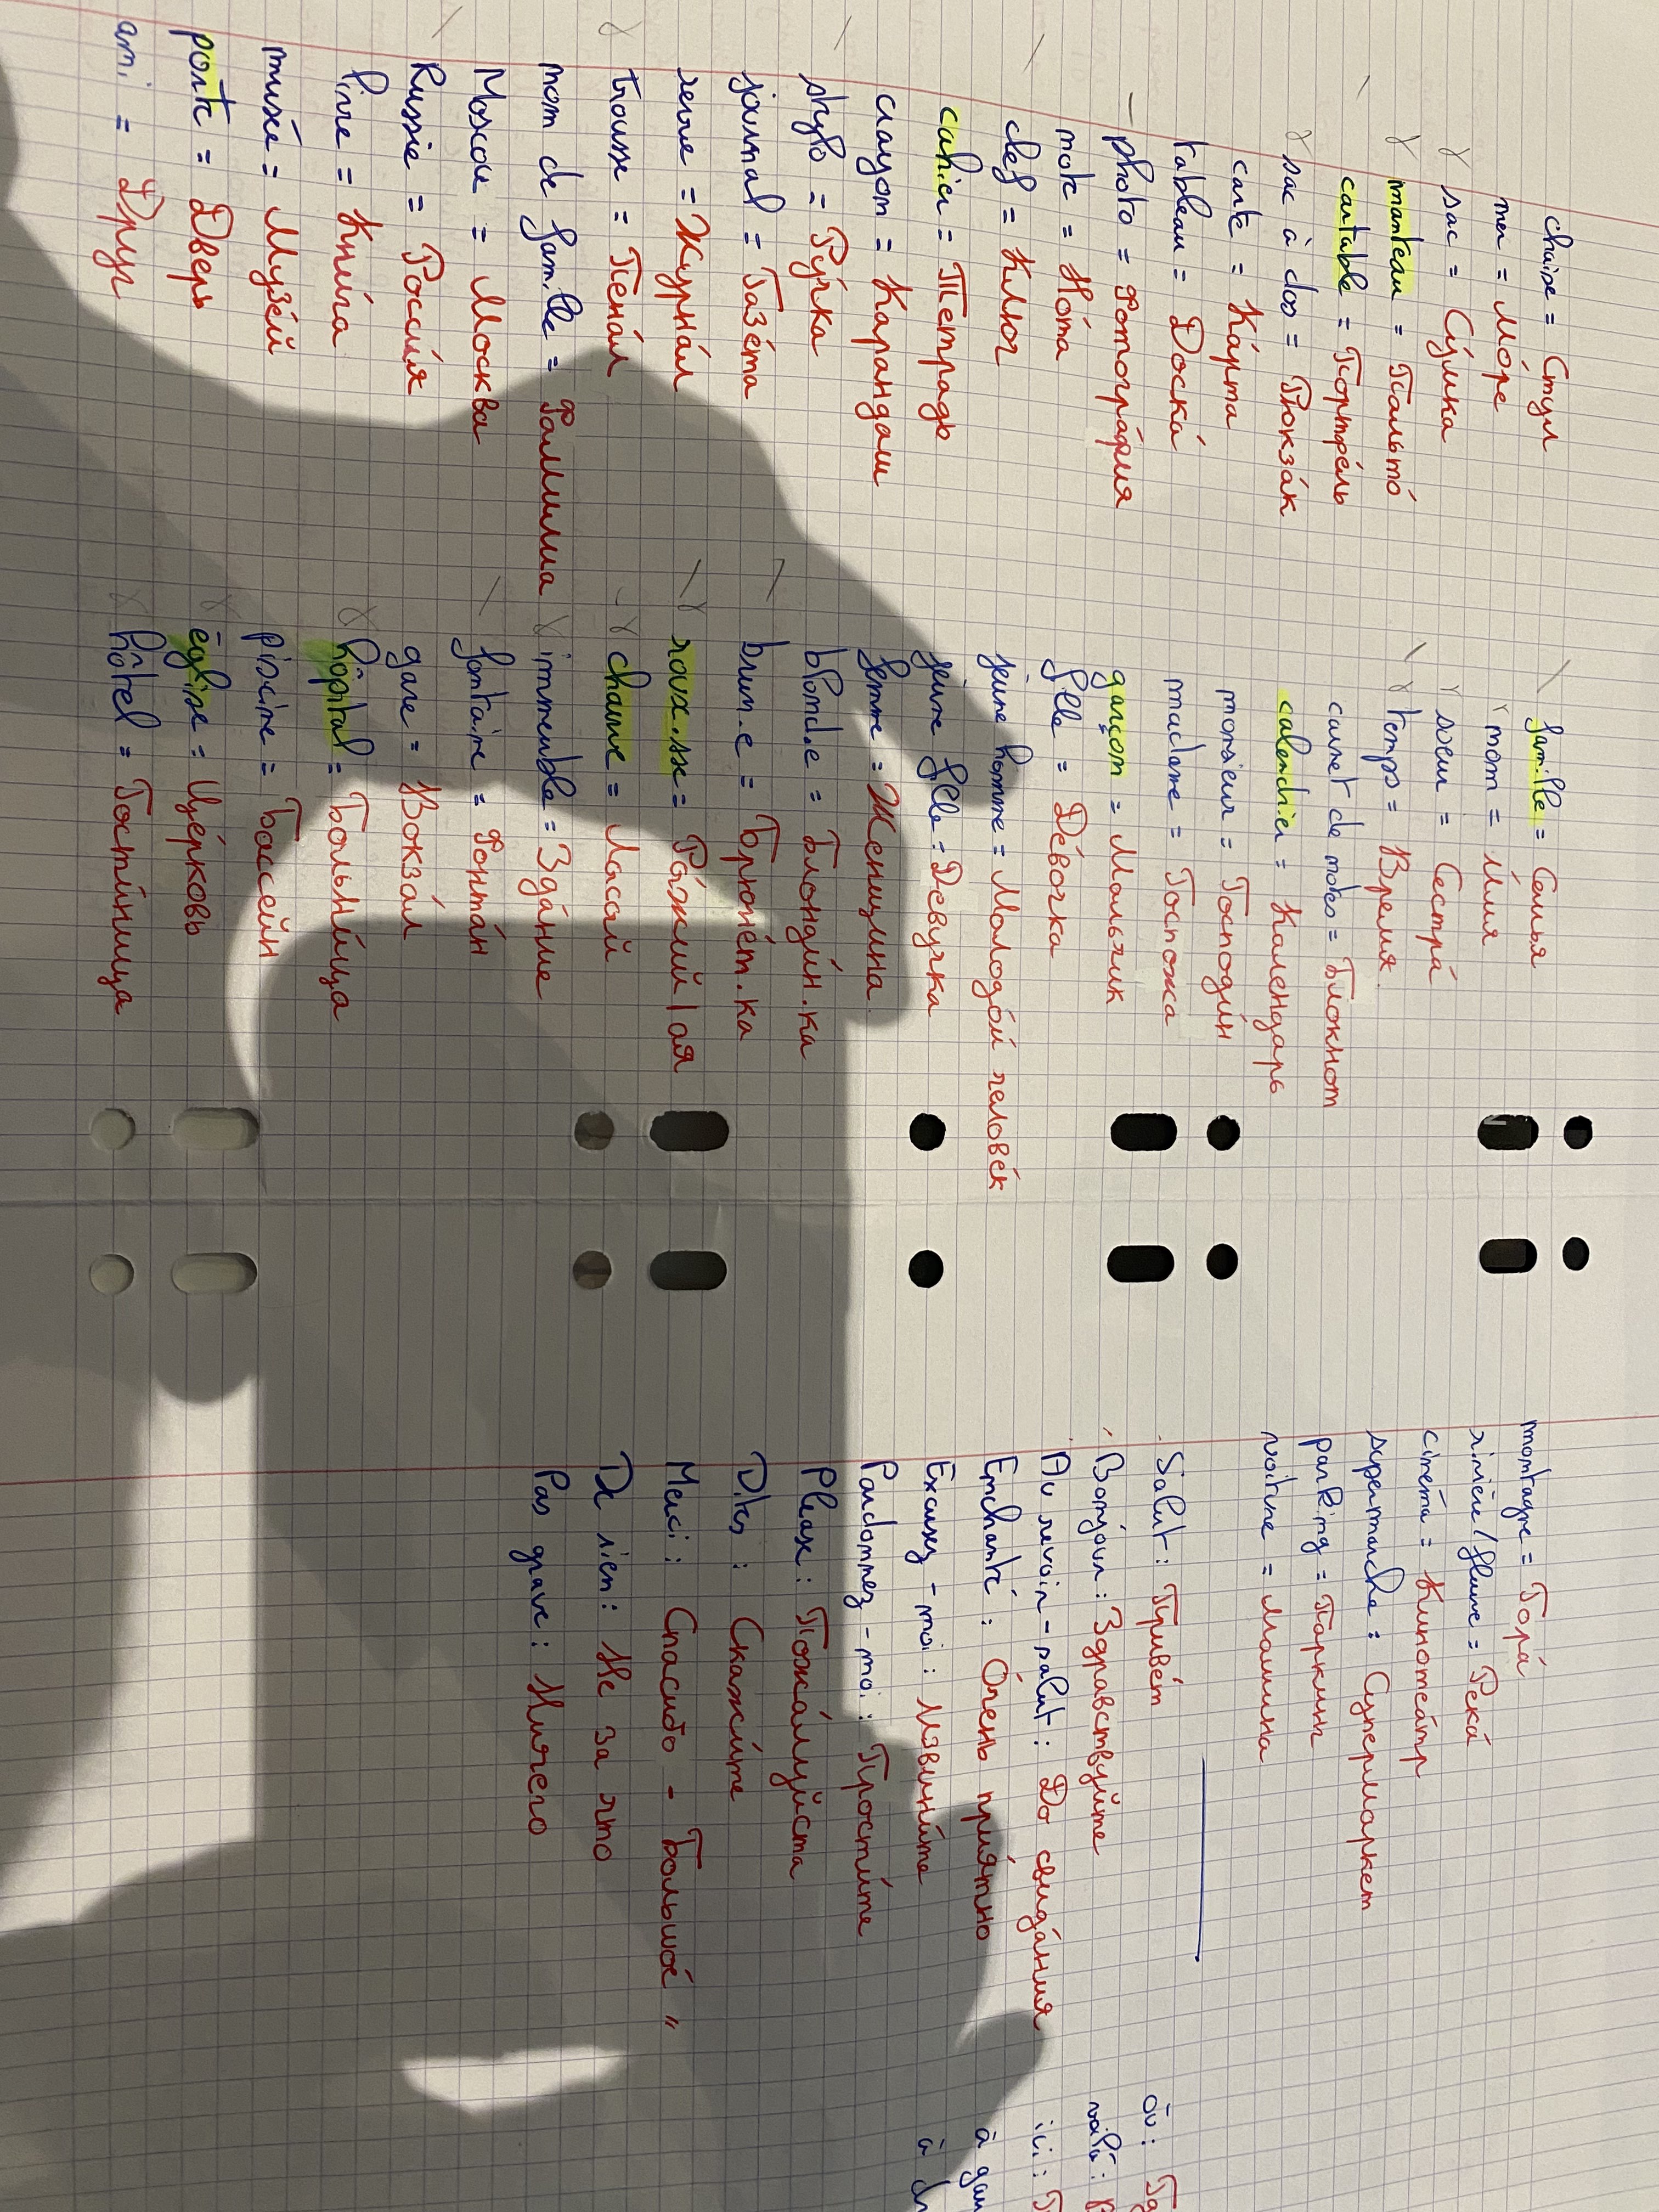 chaise = Стул
mer = Мо́ре
sac = Су́мка
manteau = Пальто́
cartable = Портфе́ль
sac à dos = Рюкза́к
carte = Ка́рта
tableau = Доска́
photo = Фотогра́фия
note = Но́та
clef = Ключ
cahier = Тетрадь
crayon = Карандаш
stylo = Ру́чка
journal = Газе́та
revue = Журна́л
trousse = Пена́л
nom de famille = Фамилиа
Moscou = Москва
Russie = Росси́я
livre = Кни́га
musée = Музе́й
porte = Дверь
ami = Друг
famille = Семья
nom = И́мя
soeur = Сестра́
temps = Время
carnet de notes = Блокнот
calendrier = Календарь
monsieur = Господи́н
madame = Госпожа
garçon = Мальчик
fille = Де́вочка
jeune homme = Молодо́й челове́к
jeune fille = Девучка
femme = Женщина
blond.e = Блонди́н.ка
brun.e = Брюне́т.ка
roux.sse = Ры́жий/ая
chauve = Лысый
immeuble = Зда́ние
fontaine = Фонта́н
gare = Вокза́л
hôpital = Больни́ца
piscine = Бассейн
église = Це́рковь
hôtel = Гости́ница
montagne = Гора́
rivière/fleuve = Река́
cinéma = Киноте́атр
supermarché = Супермаркет
parking = Паркинг
voiture = Машина
Salut : Приве́т
Bonjour : Здравствуйте
Au revoir - salut : До свида́ния
Enchanté : О́чень прия́тно
Excusez-moi : Извини́те
Pardonnez-moi : Прости́те
Please : Пожа́луйста
Dites : Скажи́те
Merci : Спасибо - Большо́е "
De rien : Не за что
Pas grave : Ничего
où : Гд
voilà : В
ici : Т
à gau
à dr